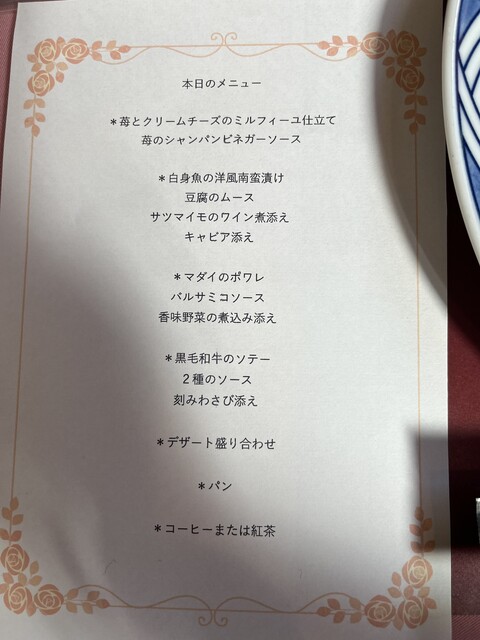 本日のメニュー
＊苺とクリームチーズのミルフィーユ仕立て
苺のシャンパンビネガーソース
＊白身魚の洋風南蛮漬け
豆腐のムース
サツマイモのワイン煮添え
キャビア添え
＊マダイのポワレ
バルサミコソース
香味野菜の煮込み添え
＊黒毛和牛のソテー
２種のソース
刻みわさび添え
＊デザート盛り合わせ
＊パン
＊コーヒーまたは紅茶